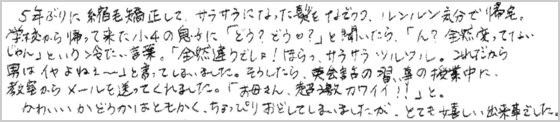 5年ぶりに縮毛矯正して、サラサラになった髪をなびかせ、ルンルン気分で帰宅。
学校から帰って来た小4の息子に「どう?どう?」と聞いたら、「ん?全然変ってない
じゃん」という冷たい言葉。「全然違うでしょ!ほらっ、サラサラツルツル。これだから
男はイヤよねぇ〜」と言ってしまいました。そうしたら、英会話の習い事の授業中に、
教室からメールを送ってくれました。「お母さん、超激カワイイ!!」と。
かわいいかどうかはともかく、ちょっぴりおどしてしまいましたが、とても嬉しい出来事でした。